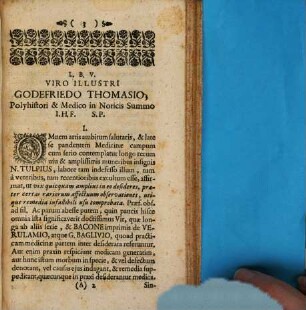 ( 3 )
L. B. V.
VIRO ILLUSTRI
GODEFRIEDO THOMASIO,
Polyhistori & Medico in Noricis Summo
I. H. F. S. P.
I.
Mnem artis ambitum salutaris, & late
se pandentem Medicinæ campum
cum serio contemplatur longo rerum
usu & amplissimis muneribus insignis
N. TULPIUS, labore tam indefesso illum, tum
à veteribus, tum recentioribus excultum esse, affir-
mat, ut vix quicquam amplius in eo desideres, præ-
ter certas variorum affectuum observationes, uti-
que remedia infallibili usu comprobata. Præf. obs.
ad fil. Ac parum abesse putem, quin paucis hisce
omnia ista significaverit doctissimus Vir, quæ longa
ab aliis serie, & BACONE imprimis de VE-
RULAMIO, atque G. BAGLIVIO, quoad practi-
cam medicinæ partem inter desiderata referuntur.
Aut enim praxin respiciunt medicam generatim,
aut hunc istum morbum in specie, & vel defectum
denotant, vel causas ejus indagant, & remedia sup-
peditant, quæcunque in praxi desiderantur medica.
(A) 2 Sin-